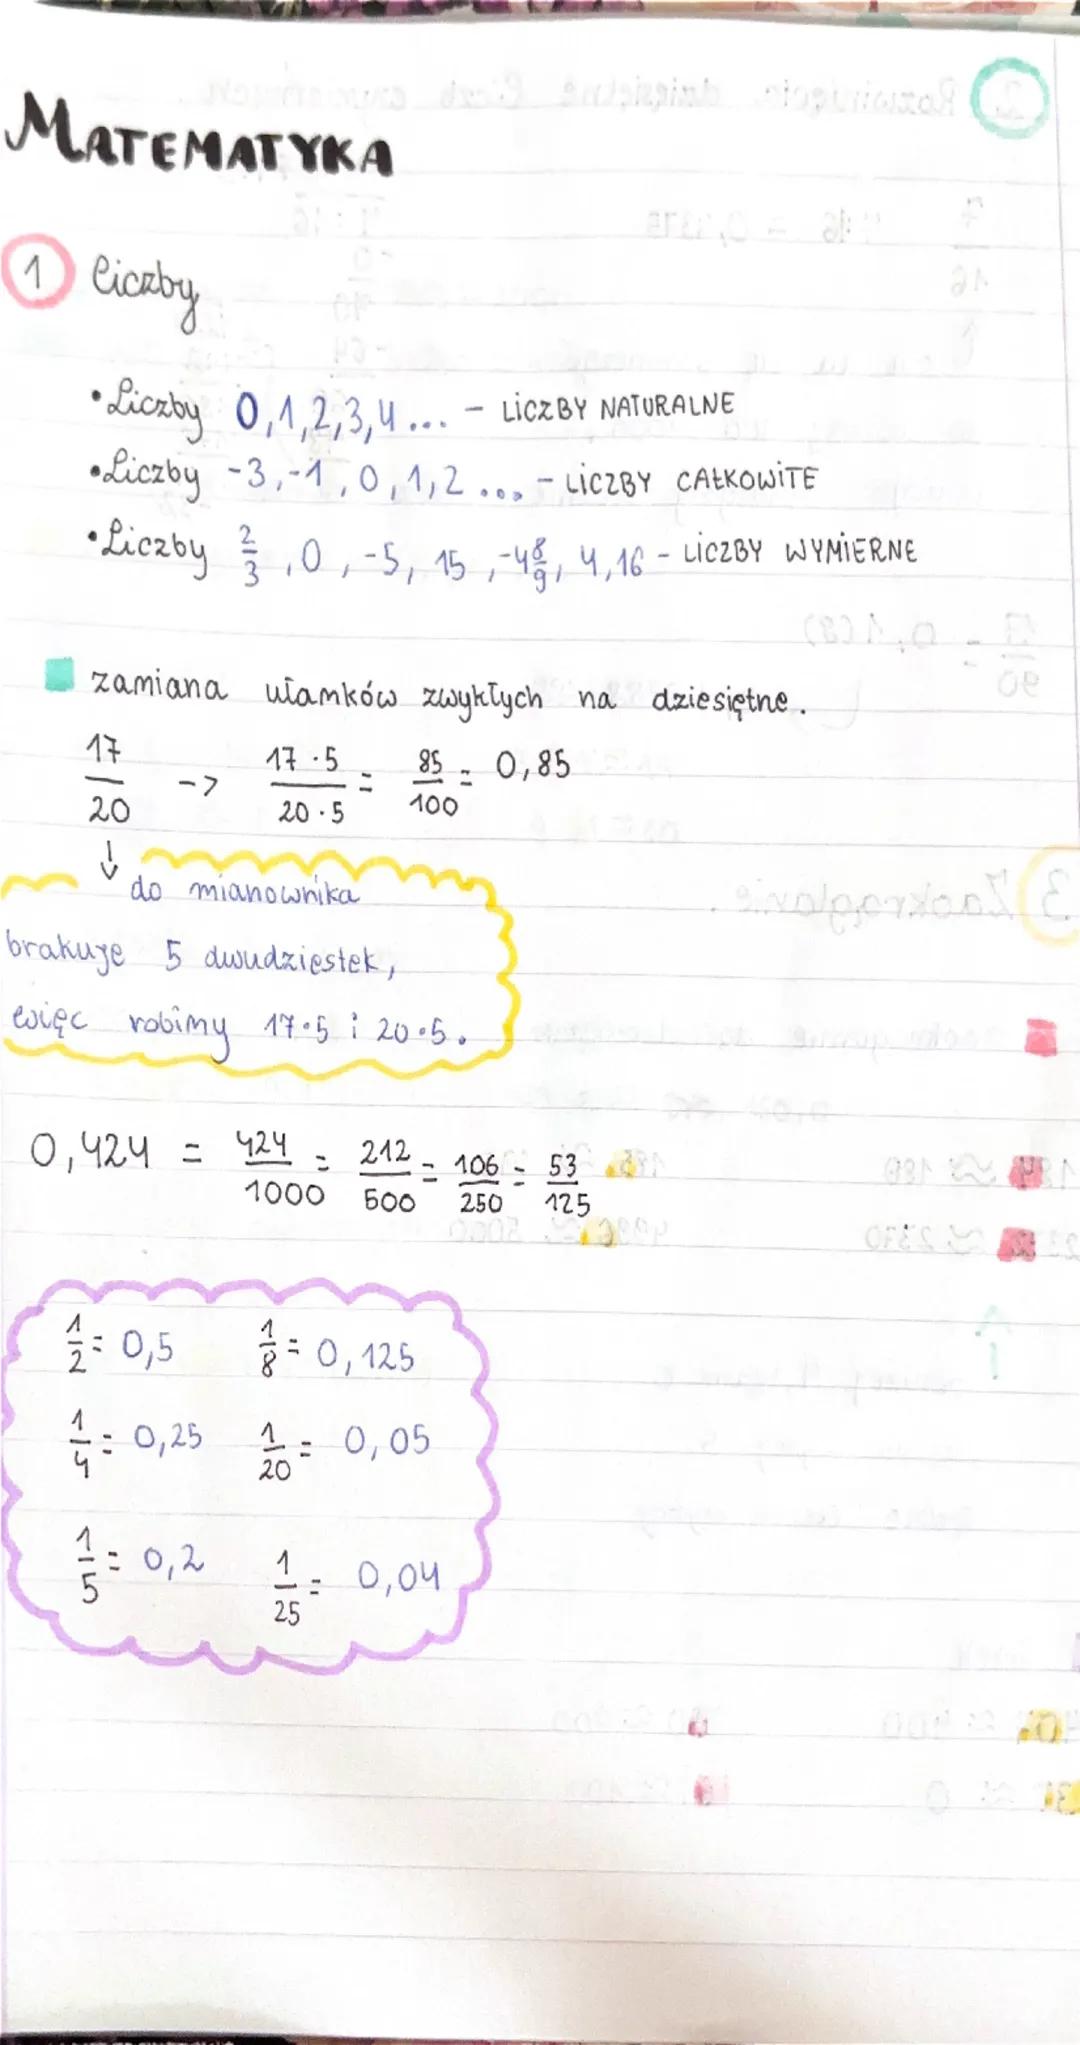 MATEMATYKA
1 liczby
•Liczby 0,1,2,3,4... - LICZBY NATURALNE
•Liczby -3,-1,0,1,2... - LICZBY CAŁKOWITE
•Liczby 2/3, 0, -5, 15, -4 8/9, 4,16 - LICZBY WYMIERNE
zamiana ułamków zwykłych na dziesiętne.
17/20 -> 17·5/20·5 = 85/100 = 0,85
↓ do mianownika
brakuje 5 dwudziestek,
więc robimy 17·5 i 20·5.
0,424 = 424/1000 = 212/500 = 106/250 = 53/125
1/2 = 0,5 1/8 = 0,125
1/4 = 0,25 1/20 = 0,05
1/5 = 0,2 1/25 = 0,04